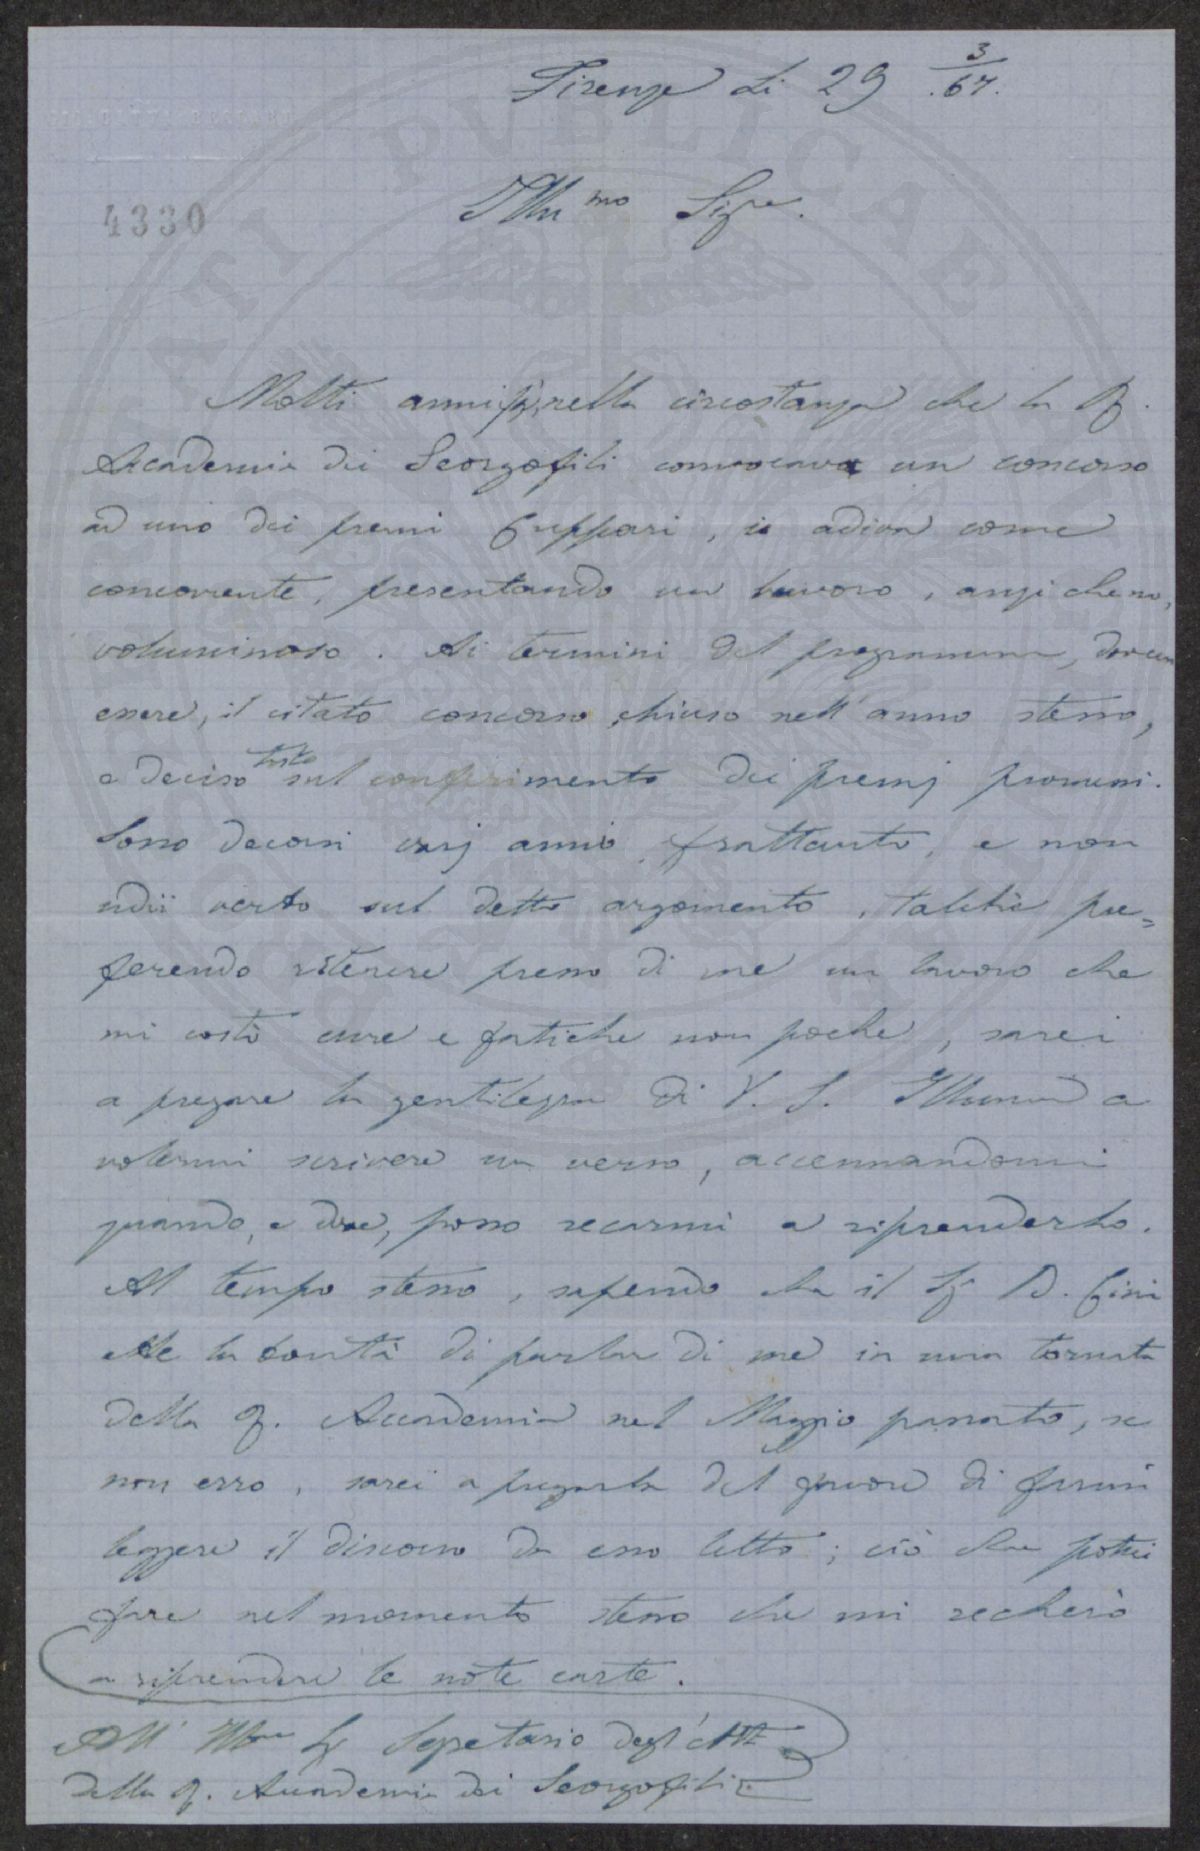 Firenze li 29 3/67.
4330
Illu mo Sigre.
Molti anni fà, nella circostanza che la R.
Accademia dei Georgofili convocava un concorso
ad uno dei premi Cuppari, io adiva come
concorrente, presentando un lavoro, anzi che no,
voluminoso. Ai termini del programma, doveva
essere, il citato concorso, chiuso nell'anno stesso,
e deciso tosto sul conferimento dei premj promessi.
Sono decorsi varj anni frattanto, e non
udii verbo sul detto argomento, talchè pre=
ferendo ritenere presso di me un lavoro che
mi costò cure e fatiche non poche, sarei
a pregare la gentilezza di V. S. Illuma a
volermi scrivere un verso, accennandomi
quando, e dove, posso recarmi a riprenderlo.
Al tempo stesso, sapendo che il Sig D. Cini
ebbe la bontà di parlar di me in una tornata
della R. Accademia nel Maggio passato, se
non erro, sarei a pregarla del favore di farmi
leggere il discorso da esso letto; ciò che potrei
fare nel momento stesso che mi recherò
a riprendere le note carte.
All' Illmo Sig Segretario degl'Atti
della R. Accademia dei Georgofili